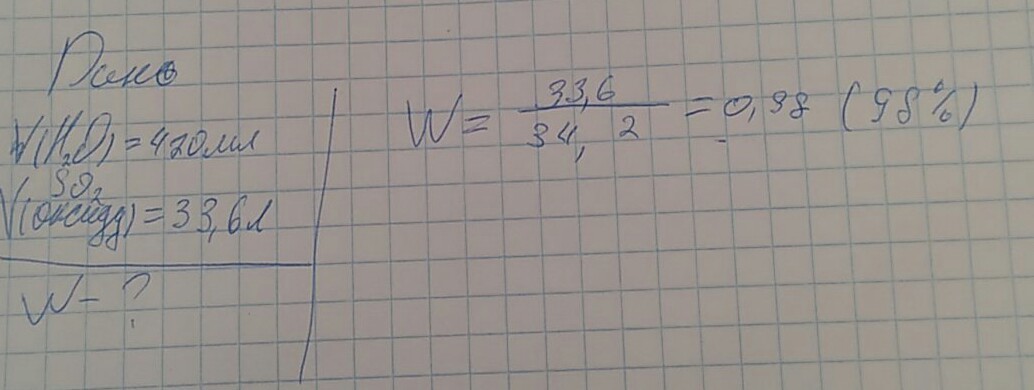 Дано
V(H₂O) = 420мл
SO₂
V(оксид) = 33,6л
W - ?
W = 33,6 / 34, 2 = 0,98 (98%)